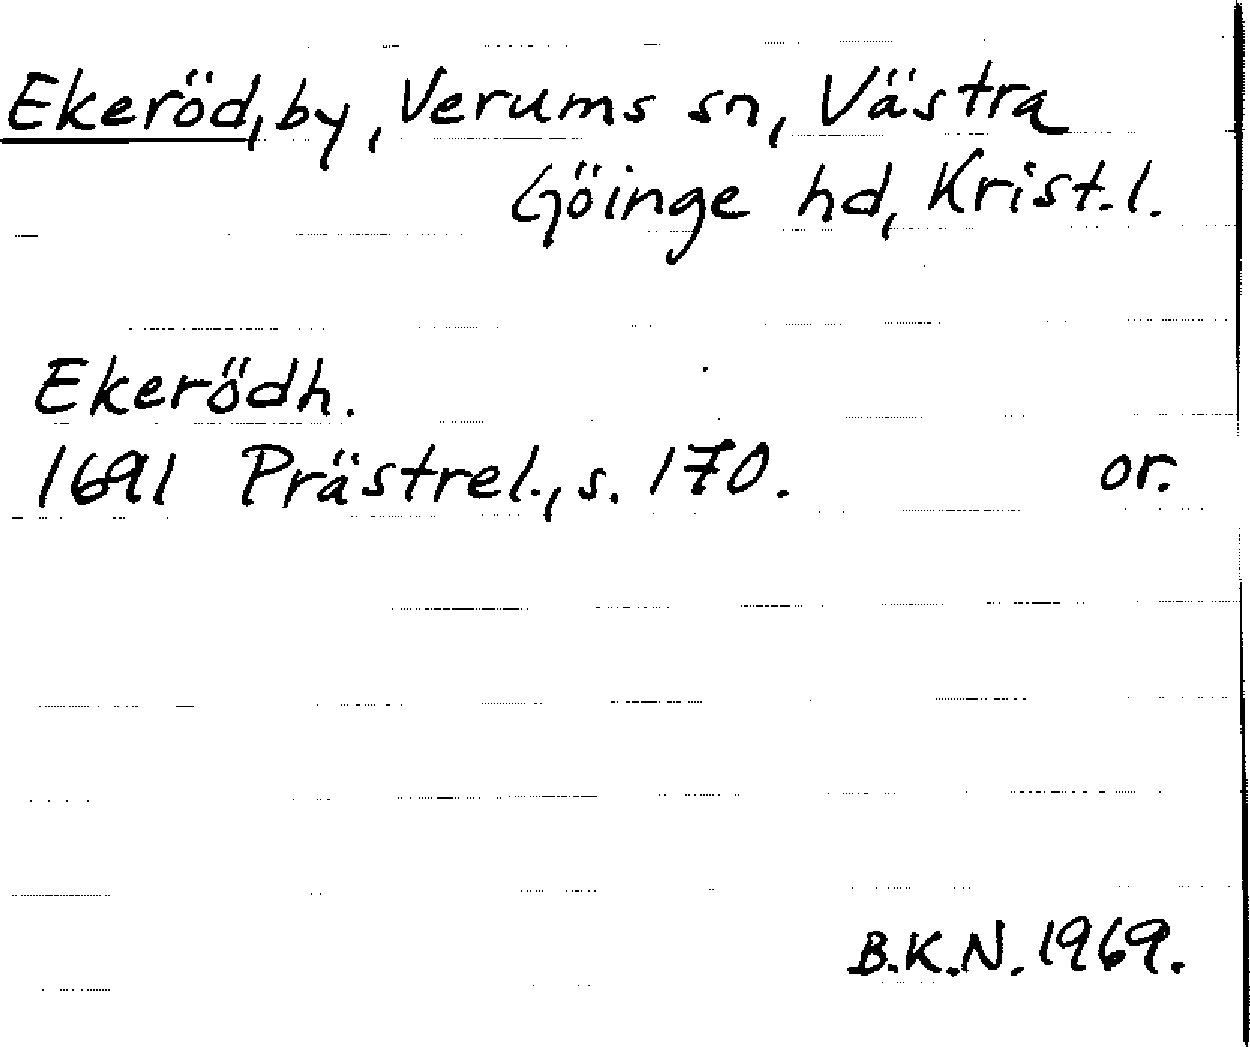 Ekeröd, by, Verums sn, Västra
Göinge hd, Krist. l.
Ekerödh.
1691 Prästrel., s. 170. or.
B.K.N. 1969.